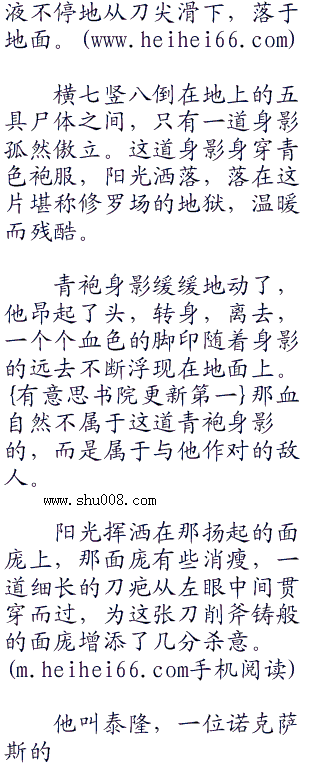 液不停地从刀尖滑下，落于
地面。(www.heihei66.com)
横七竖八倒在地上的五
具尸体之间，只有一道身影
孤然傲立。这道身影身穿青
色袍服，阳光洒落，落在这
片堪称修罗场的地狱，温暖
而残酷。
青袍身影缓缓地动了，
他昂起了头，转身，离去，
一个个血色的脚印随着身影
的远去不断浮现在地面上。
{有意思书院更新第一}那血
自然不属于这道青袍身影
的，而是属于与他作对的敌
人。
www.shu008.com
阳光挥洒在那扬起的面
庞上，那面庞有些消瘦，一
道细长的刀疤从左眼中间贯
穿而过，为这张刀削斧铸般
的面庞增添了几分杀意。
(m.heihei66.com手机阅读)
他叫泰隆，一位诺克萨
斯的